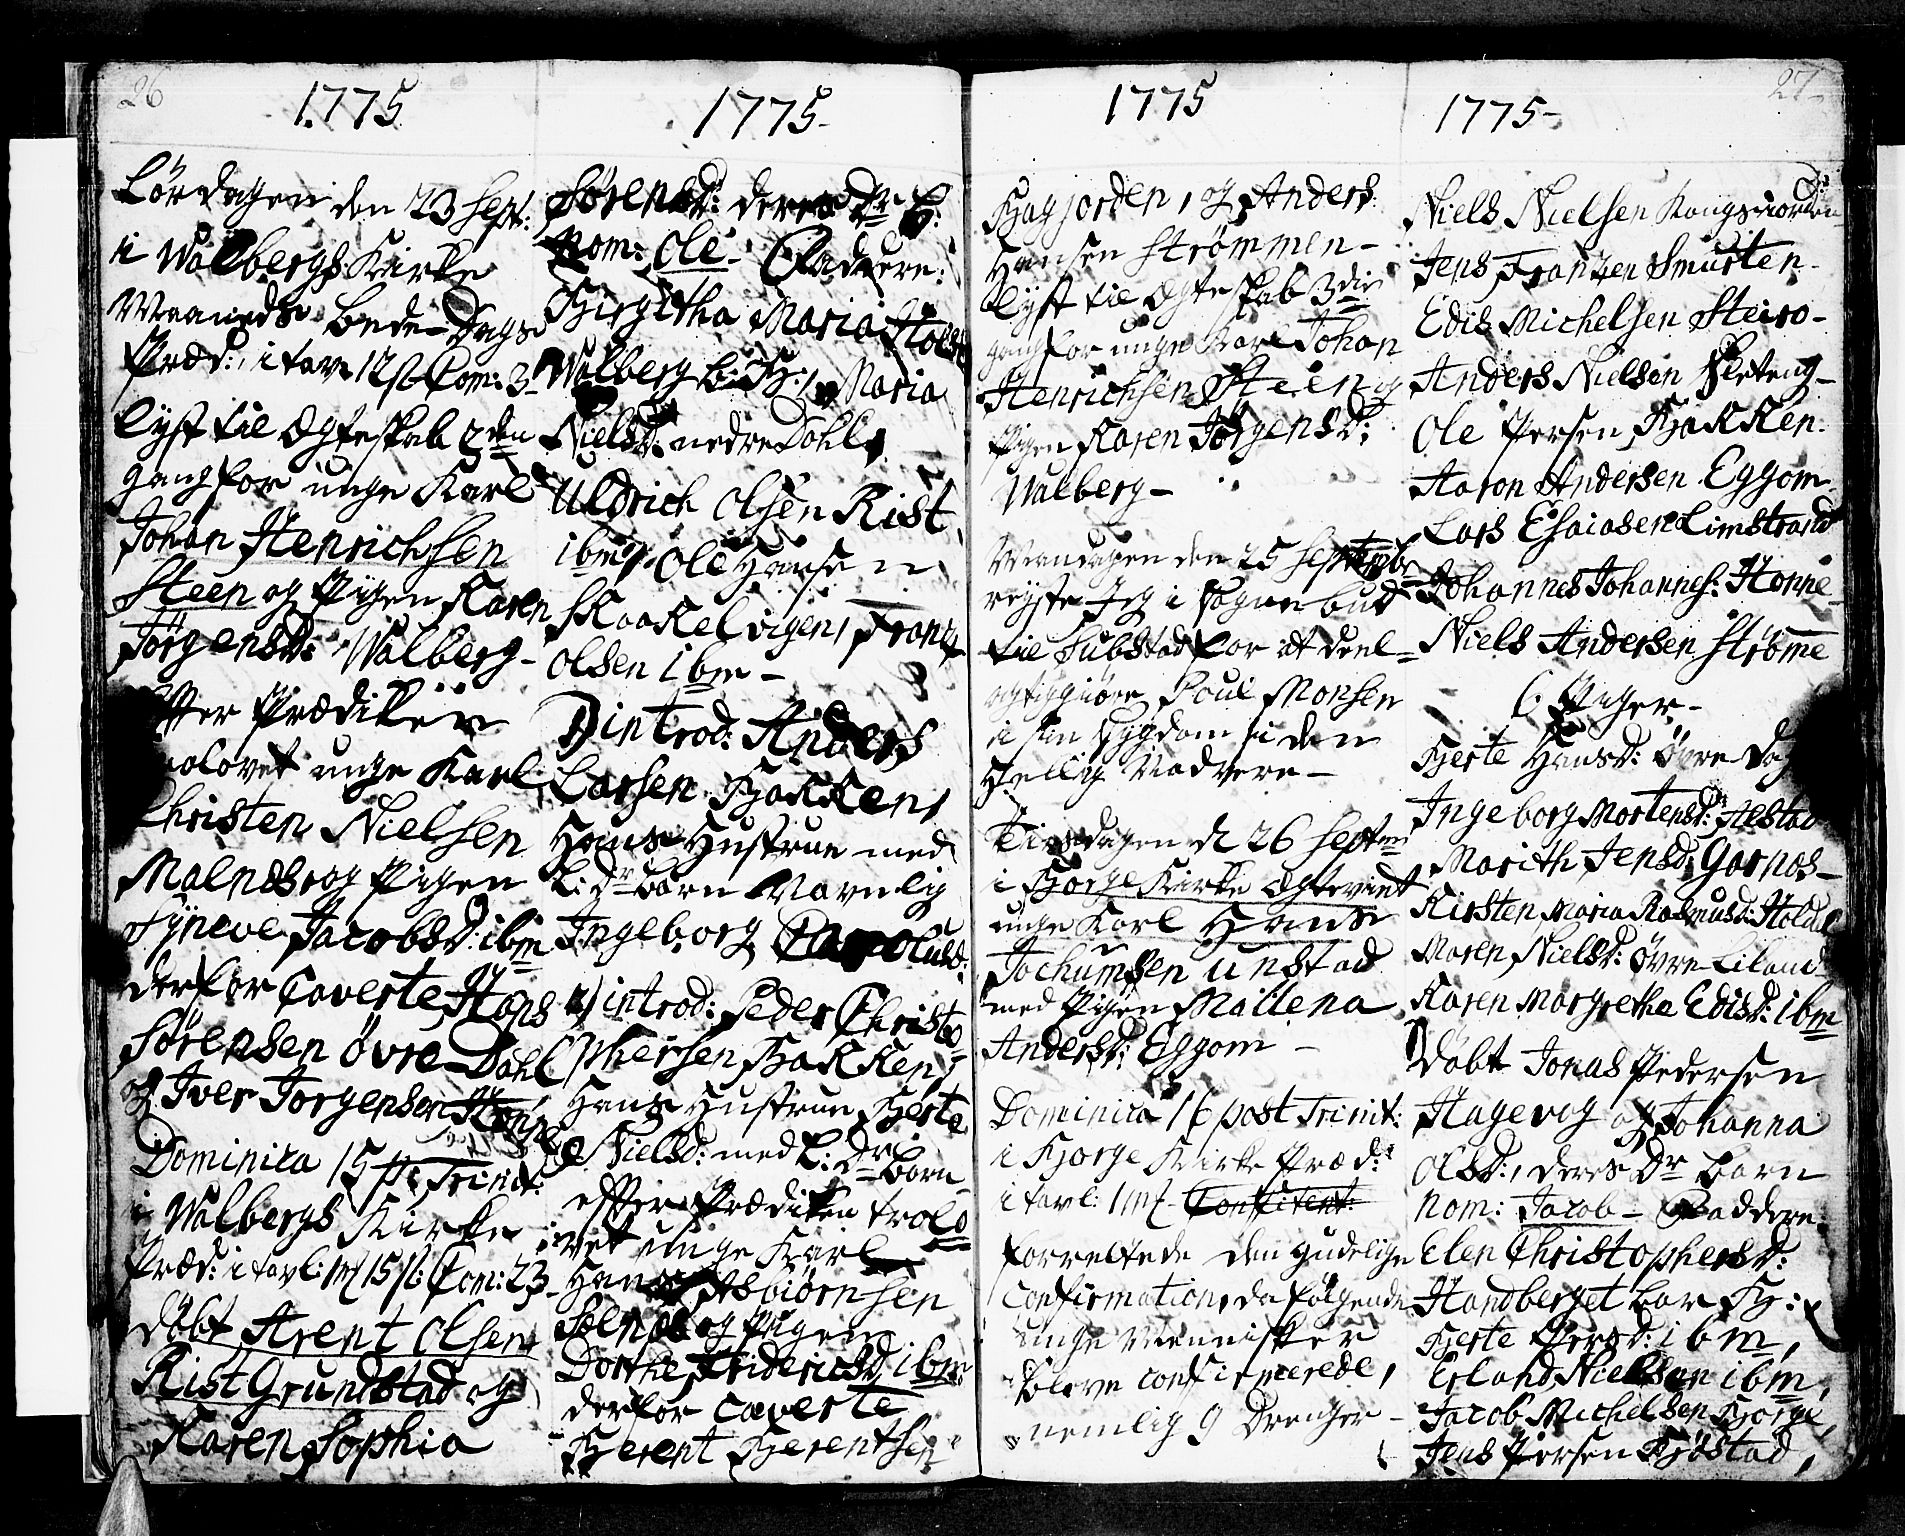 26
1775
Lördagen den 23 Sept:
i Walbergs Kirke
Maaneds Bede-Dags
Præd: i tavl 12 ß Com: 3
lyst til Ægteskab 2den
gang for unge Karl
Johan Henrichsen
Steen og Pigen Karen
Jörgensd: Walberg-
Efter Prædiken
trolovet unge Karl
Christen Nielsen
Malnes og Pigen
Syneve Jacobsd: ibm
derfor Caverte Hans
Sörensen övre Dahl
og Iver Jorgensen
Dominica 15 p: Trinit:
i Walbergs Kirke
Præd: i tavl: 1 mk 15 ß: Com: 23
döbt Arent Olsen
Rist Grundstad og
Karen Sophia
1775-
Sörensd: deres Dr B:
Nom: Ole- Fadere:
Birgitha Maria Holst
Walberg bar B:, Maria
Nielsd: nedre Dahl,
Uldrich Olsen Rist
ibm, Ole Hansen
Skaakelvigen, Frantz
Olsen ibm-
1) introd: Anders
Larsen Bakken,
Hans Hustrue med
Barn Navnlig
Ingeborg
2) introd: Peder Christo-
phersen Bakken,
Hans Hustrue Berte
Nielsd: med Dr Barn
efter Prædiken trolo
vet unge Karl
Hans Asbiörnsen
Solnes og Pigen
Dorthe Fridrichsd, ibm
derfor caverte
Berent Berentsen
1775
Hagjorden, og Anders
Hansen Strömmen-
lyst til Ægteskab 3die
gang for unge Karl Johan
Henrichsen Steen og
Pigen Karen Jörgensd:
Walberg-
Mandagen den 25 Septembr
reyste Jeg i Sognebud
til Substad for at deel-
agtiggiöre Poul Monsen
i sin Sygdom i den
Hellig Nadvere-
Tirsdagen d 26 Septem
i Borge Kirke Ægteviet
unge Karl Hans
Jochumsen Unstad
med Pigen Mallena
Andersd: Eggom-
Dominica 16 post Trinit:
i Borge Kirke Præd:
i tavl: 1 mk Confitent:
forrettede den gudelige
Confirmation, da fölgende
unge Mennisker
bleve confirmerede,
nemlig 9 Drenger-
27
1775-
Niels Nielsen Kongsiorden
Jens Frantzen Smurten-
Edis Michelsen Steiro-
Anders Nielsen Sleteng-
Ole Persen Bakken-
Aaron Andersen Eggom
Lars Esaiasen Limstrand
Johannes Johannes: Honne-
Niels Andersen Ströme
6 Piger-
Berte Hansd: övre Da
Ingeborg Mortensd: Alstad
Marith Jensd: Garnæs-
Kirsten Maria Rasmusd: Holdal
Maren Nielsd: övre Liland
Karen Margrethe Edisd: ibm
Döbt Jonas Pedersen
Hagevog og Johanna
Olsd:, deres Dr Barn
Nom: Jacob- Faddere
Elen Christophersd:
Handberget bar B:,
Berte Persd: ibm,
Erland Nielsen ibm,
Jacob Michelsen Borge,
Jens Persen Böstad,